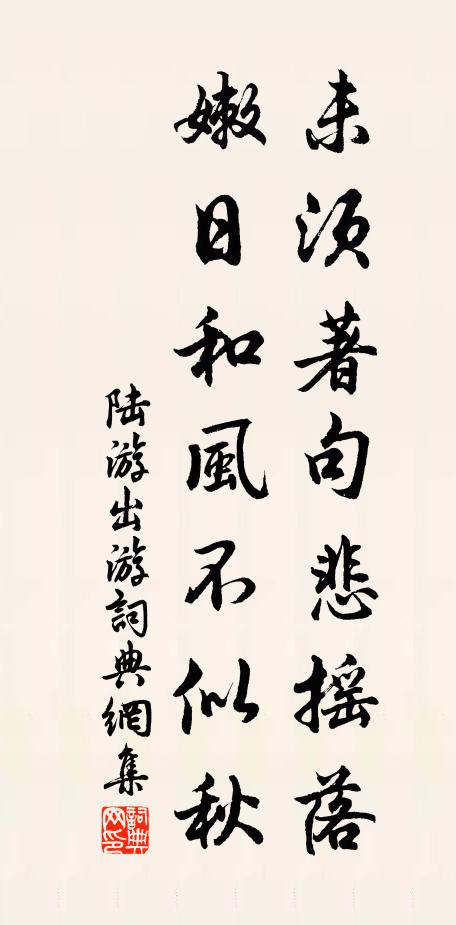 未须著句悲摇落
嫩日和風不似秋
陆游出游詞典網集
詞典网印